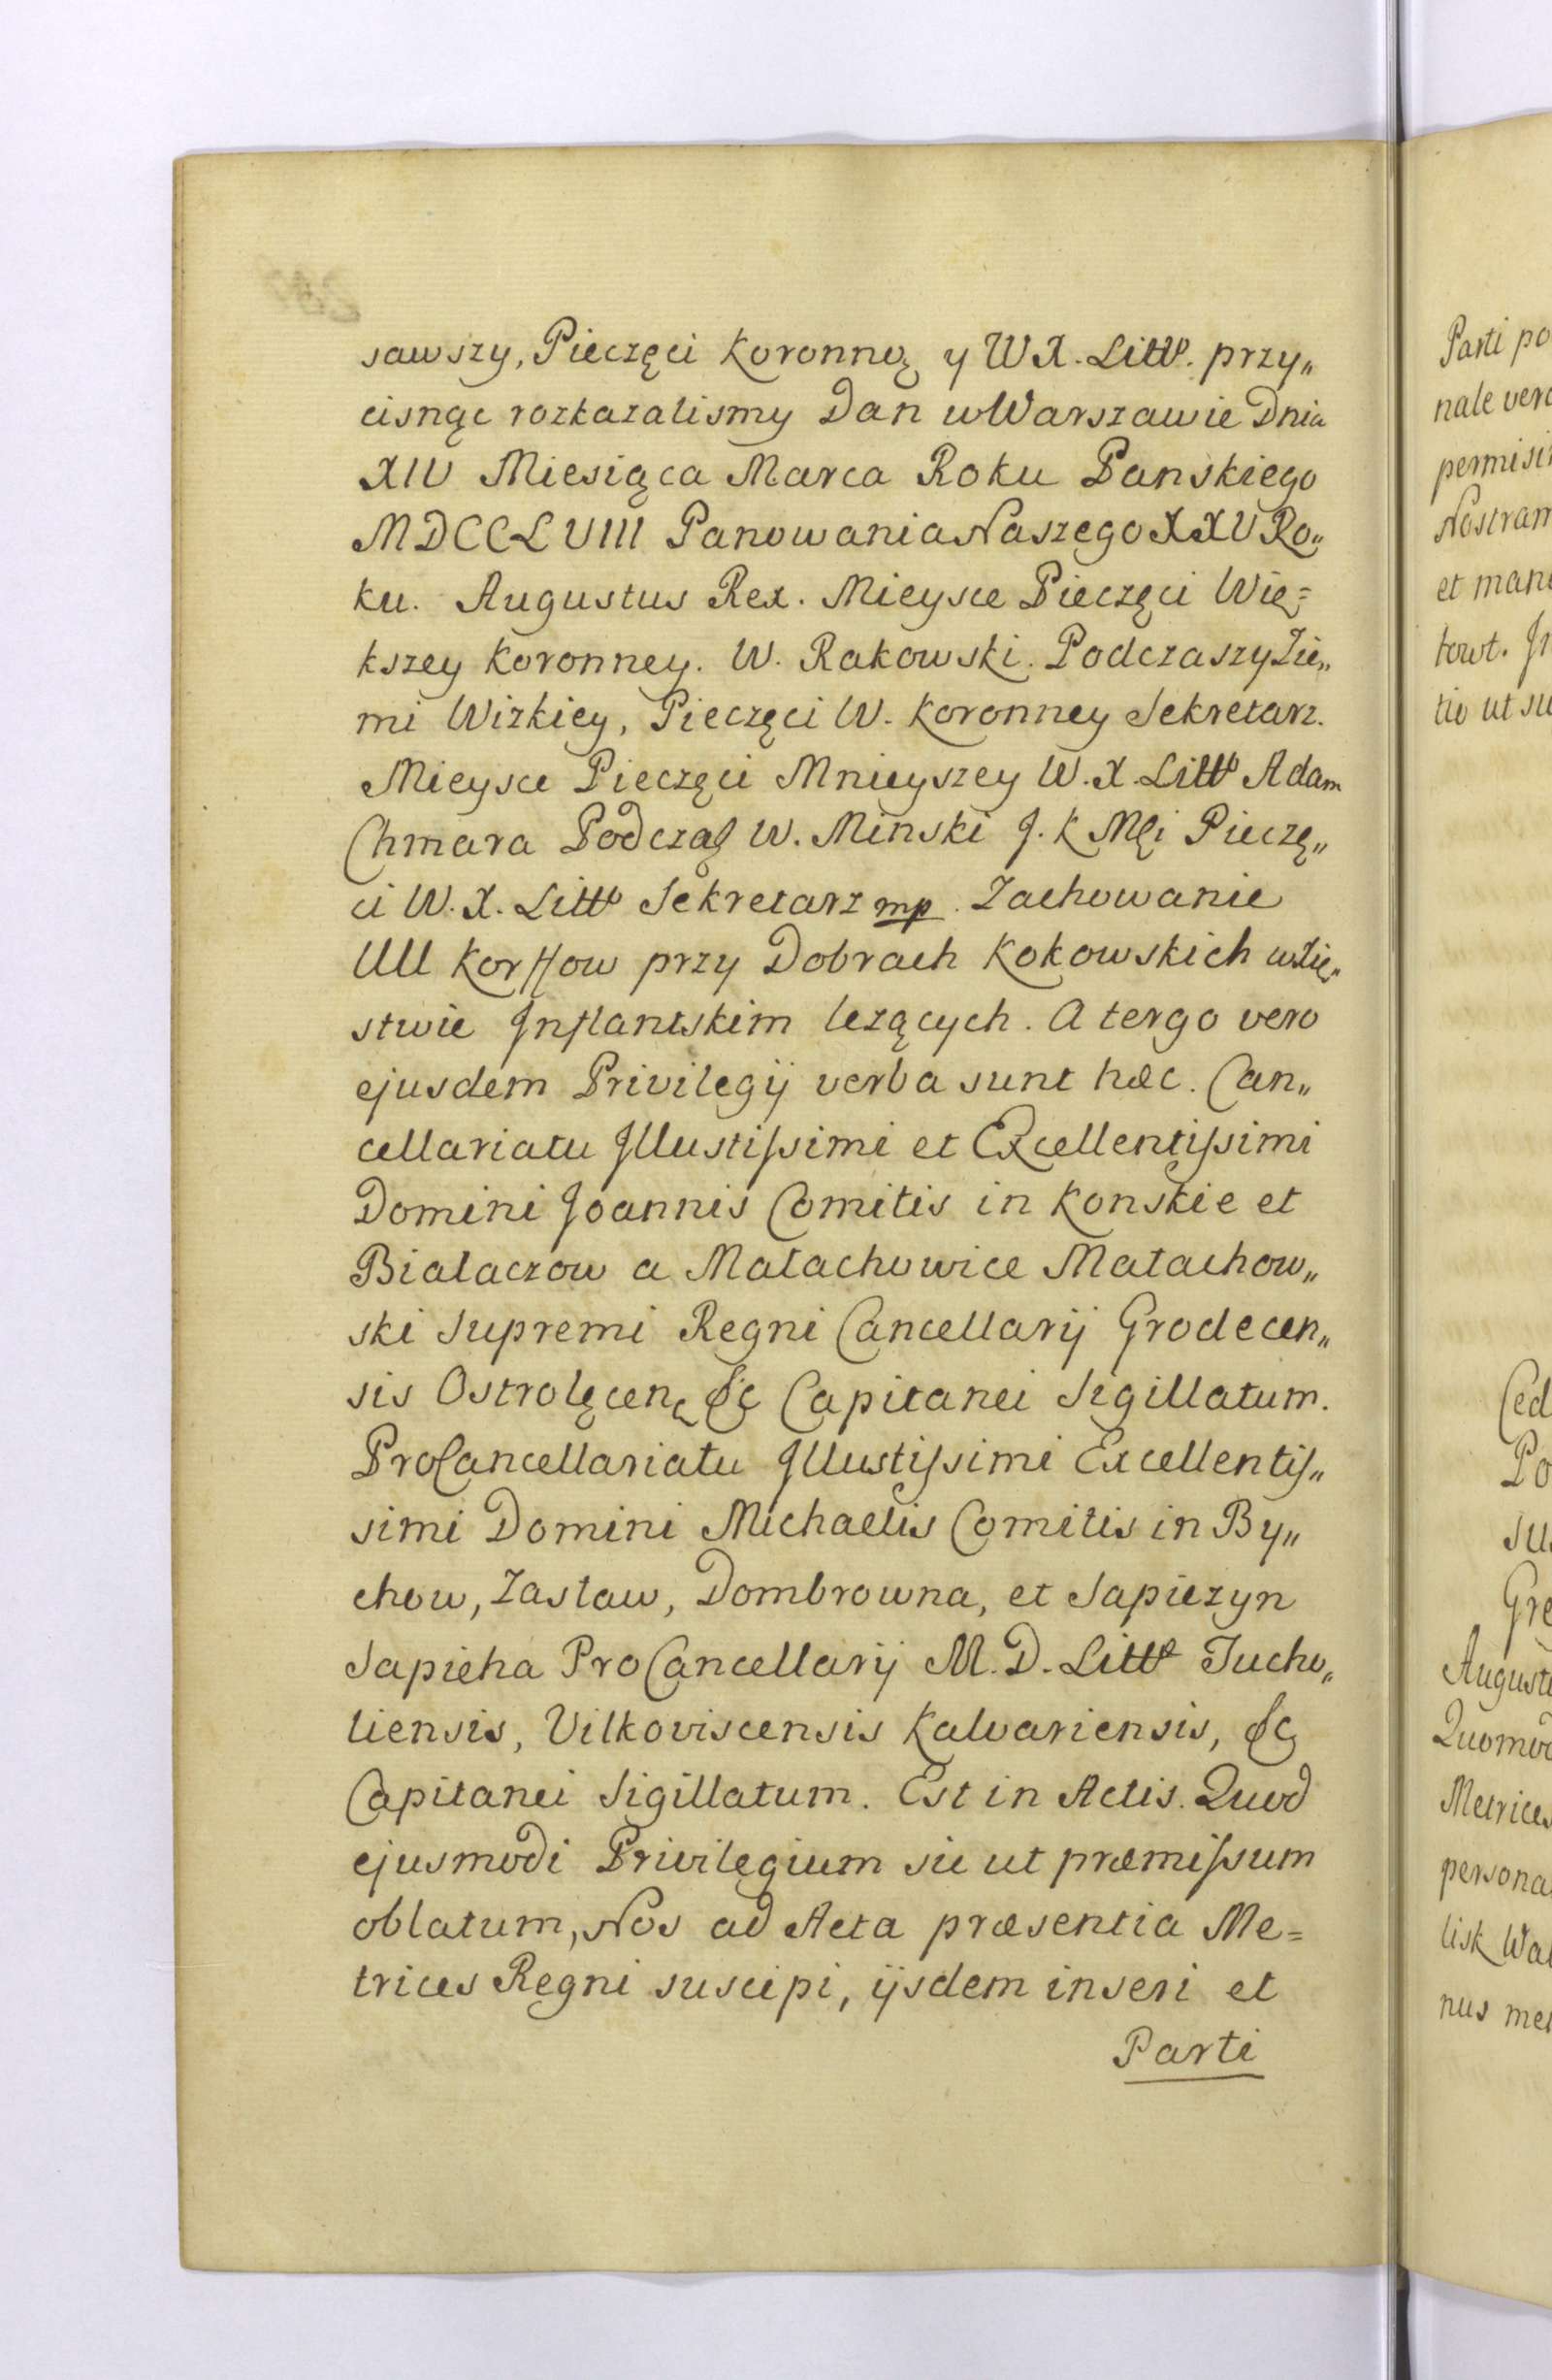 sawszy, Pieczęci Koronną y WX. Litto. przy„
cisnąc rozkazalismy Dan w Warszawie Dnia
XIV Miesiąca Marca Roku Panskiego
MDCCLVIII Panowania Naszego XXV Ro„
ku. Augustus Rex. Mieysce Pieczęci Wię=
kszey Koronney. W. Rakowski. Podczaszy Zie„
mi Wizkiey, Pieczęci W. Koronney Sekretarz.
Mieysce Pieczęci Mnieyszey W. X. Litto Adam
Chmara Podczaß W. Minski J. K Mçi Pieczę„
ci W. X. Litto Sekretarz mp. Zachowanie
UU Korffow przy Dobrach Kokowskich w Xię„
stwie Inflantskim lezących. A tergo vero
ejusdem Privilegij verba sunt hæc. Can„
cellariatu Illustissimi et Excellentissimi
Domini Joannis Comitis in Konskie et
Bialaczow a Małachowice Małachow„
ski Supremi Regni Cancellarij Grodecen„
sis Ostrolęcen, &c Capitanei Sigillatum.
ProCancellariatu Illustissimi Excellentis„
simi Domini Michaelis Comitis in By„
chow, Zasław, Dombrowna, et Sapiezyn
Sapieha ProCancellarij M. D. Litte Tucho„
liensis, Vilkoviscensis Kalvariensis, &c
Capitanei Sigillatum. Est in Actis. Quod
ejusmodi Privilegium sic ut præmissum
oblatum, Nos ad Acta præsentia Me=
trices Regni suscipi, ijsdem inseri et
Parti
Parti po
nale vero
permisi
Nostram
et man
towt. In
tio ut su
Ced
Po
su
Gre
Augusti
Quomod
Metrices
persona
lisk Wal
nus me